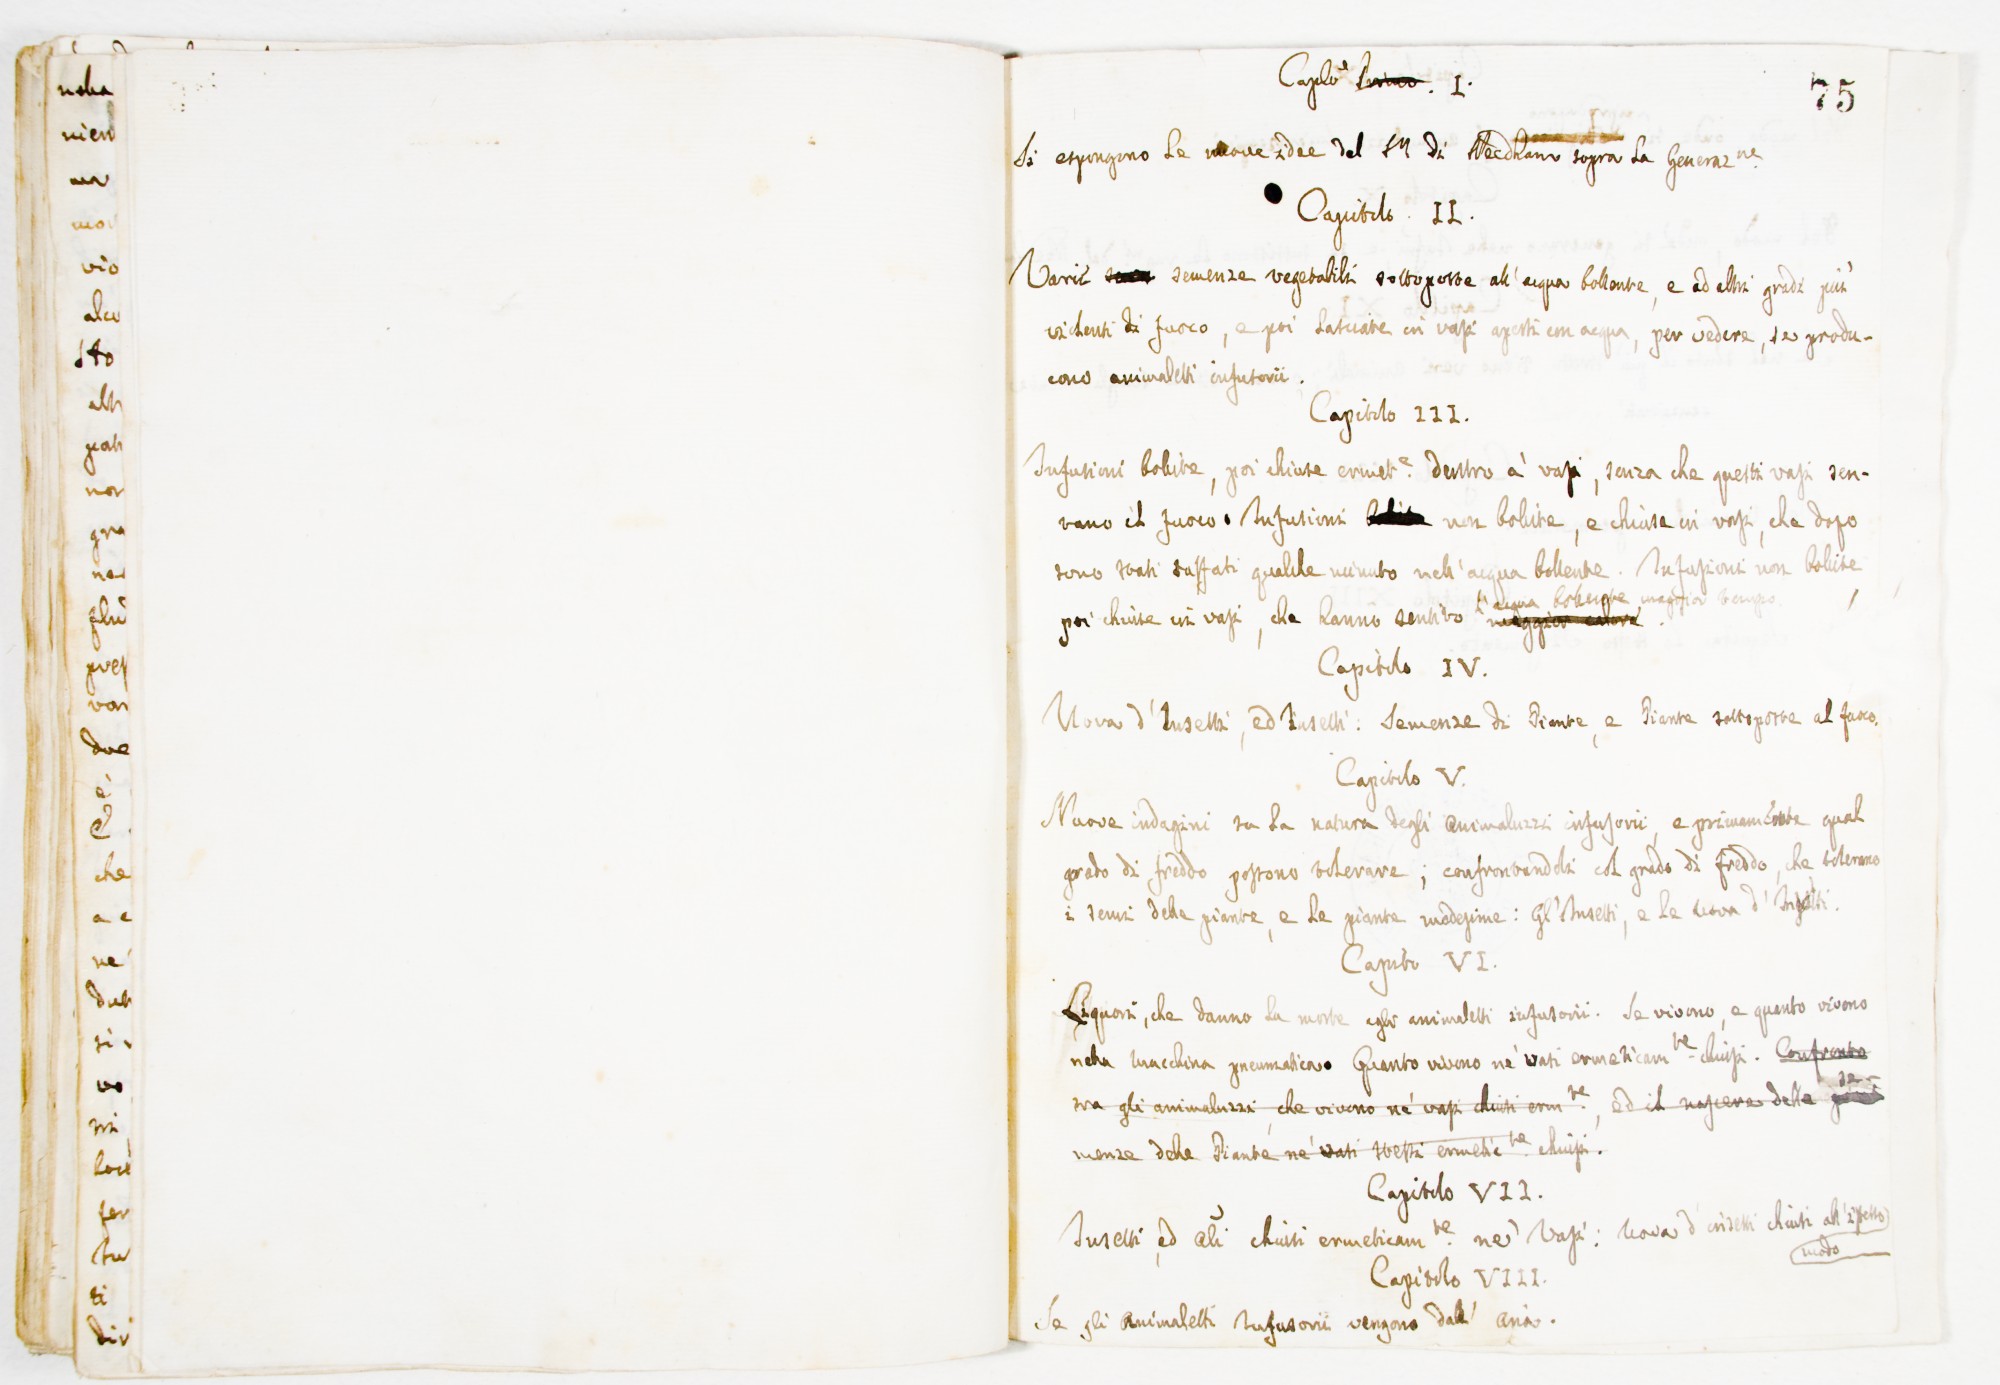 nella
nien
ma
mor
vio
alcu
sto
altr
patr
non
gra
ne
più
pres
van
due
è
E
che
a c
ne'
dut
si
vo
ri
loro
fer
tu
ti
div
75
Caplo Primo. I.
Si espongono le nuove idee del Sr di Needham sopra la Generazne.
Capitolo. II.
Varie semenze vegetabili sottoposte all'acqua bollente, e ad altri gradi più
violenti di fuoco, e poi lasciate in vasi aperti con acqua, per vedere, se produ-
cono animaletti infusorii.
Capitolo III.
Infusioni bollite, poi chiuse ermete. dentro a' vasi, senza che questi vasi sen-
tano il fuoco. Infusioni bollite non bollite, e chiuse in vasi, che dopo
sono stati tuffati qualche minuto nell'acqua bollente. Infusioni non bollite
l'acqua bollente maggior tempo.
poi chiuse in vasi, che hanno sentito maggior calore.
Capitolo IV.
Uova d'Insetti, ed Insetti: Semenze di Piante, e Piante sottoposte al fuoco.
Capitolo V.
Nuove indagini su la natura degli animaluzzi infusorii, e primamente qual
grado di freddo possono tolerare; confrontandoli col grado di freddo, che tolerano
i semi delle piante, e le piante medesime: Gl'Insetti, e le uova d'Insetti.
Capitolo VI.
Liquori, che danno la morte agli animaletti infusorii. Se vivono, e quanto vivono
nella macchina pneumatica. Quanto vivono ne' vasi ermeticamte chiusi. Confronto
tra gli animaluzzi, che vivono ne' vasi chiusi ermte, ed il nascere delle se-
menze delle Piante ne' vasi stessi ermeticte chiusi.
Capitolo VII.
Insetti, ed altri chiusi ermeticamte ne' Vasi: Uova d'insetti chiusi all'istesso
modo
Capitolo VIII.
Se gli Animaletti Infusorii vengono dall'aria.